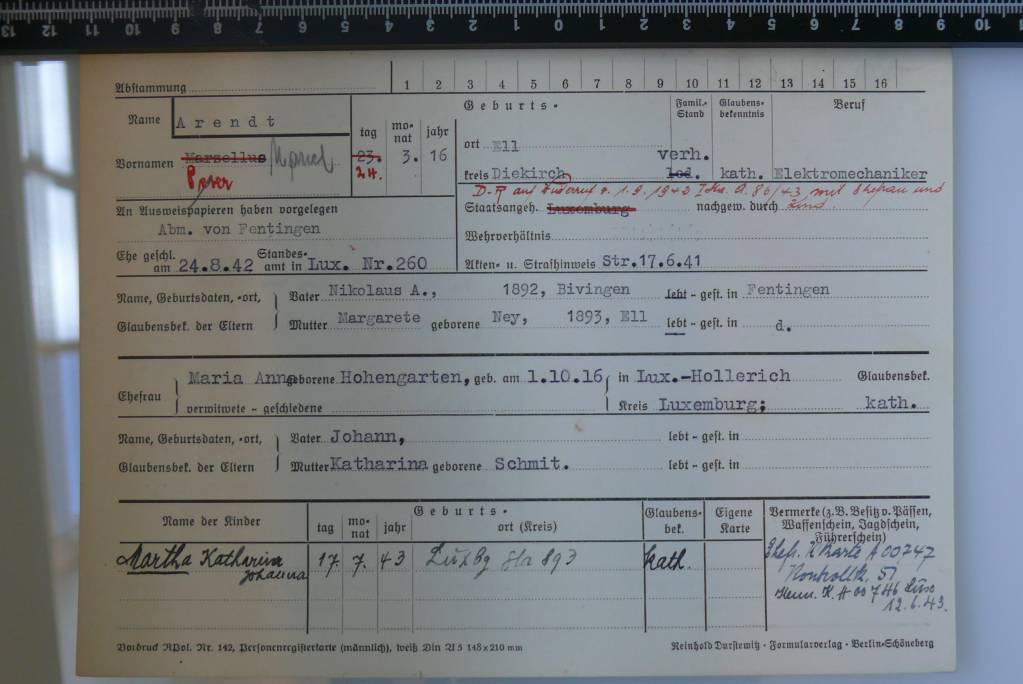 13 12 11 10 9 8 7 6 5 4 3 2 1 0 1 2 3 4 5 6 7 8 9 10
Abstammung 1 2 3 4 5 6 7 8 9 10 11 12 13 14 15 16
Name Arendt
tag monat jahr
Geburts-
Famil.-Stand
Glaubensbekenntnis
Beruf
Vornamen Marzellus Marcel
Peter
23. 3. 16
24.
ort Ell
kreis Diekirch
verh.
led. kath. Elektromechaniker
D.R auf Widerruf v. 1.9.1942 86/43 mit Ehefrau und
Kind.
Staatsangeh. Luxemburg nachgew. durch
An Ausweispapieren haben vorgelegen
Abm. von Fentingen
Wehrverhältnis
Ehe geschl. am 24.8.42 Standesamt in Lux. Nr.260
Akten- u. Strafhinweis Str.17.6.41
Name, Geburtsdaten, -ort, Vater Nikolaus A., 1892, Bivingen lebt - gest. in Fentingen
Glaubensbek. der Eltern Mutter Margarete geborene Ney, 1893, Ell lebt - gest. in d.
Ehefrau Maria Anna geborene Hohengarten, geb. am 1.10.16 in Lux.-Hollerich Glaubensbek.
verwitwete - geschiedene Kreis Luxemburg; kath.
Name, Geburtsdaten, -ort, Vater Johann, lebt - gest. in
Glaubensbek. der Eltern Mutter Katharina geborene Schmit. lebt - gest. in
Name der Kinder
Geburts-
tag monat jahr ort (Kreis)
Glaubensbek.
Eigene Karte
Vermerke (z.B. Besitz v. Pässen,
Waffenschein, Jagdschein,
Führerschein)
Martha Katharina
Johanna
17. 7. 43 Luxbg 893 kath.
Ehefr. K Karte A 00747
Kontrollk. 51
Kenn. K. A 00746 Lux
12.6.43.
Vordruck RPol. Nr. 142, Personenregisterkarte (männlich), weiß Din A 5 148 x 210 mm
Reinhold Durstewitz · Formularverlag · Berlin-Schöneberg